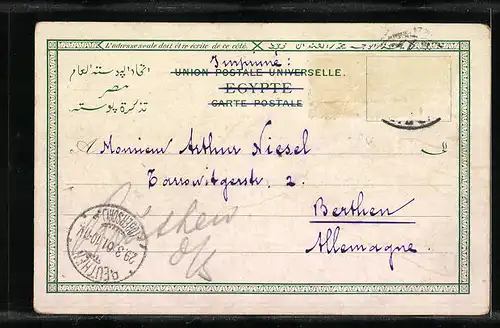 L'adresse seule doit être écrite de ce côté.
Imprimé:
اتحاد البوستة العام
UNION POSTALE UNIVERSELLE.
مصر
EGYPTE
تذكرة بوستة
CARTE POSTALE
A Monsieur Arthur Niesel
الى
Tarnowitzerstr. 2.
Berthen
Beuthen
O/S
Allemagne.
BEUTHEN
(OBERSCHL)
29.3.01.10-11V.